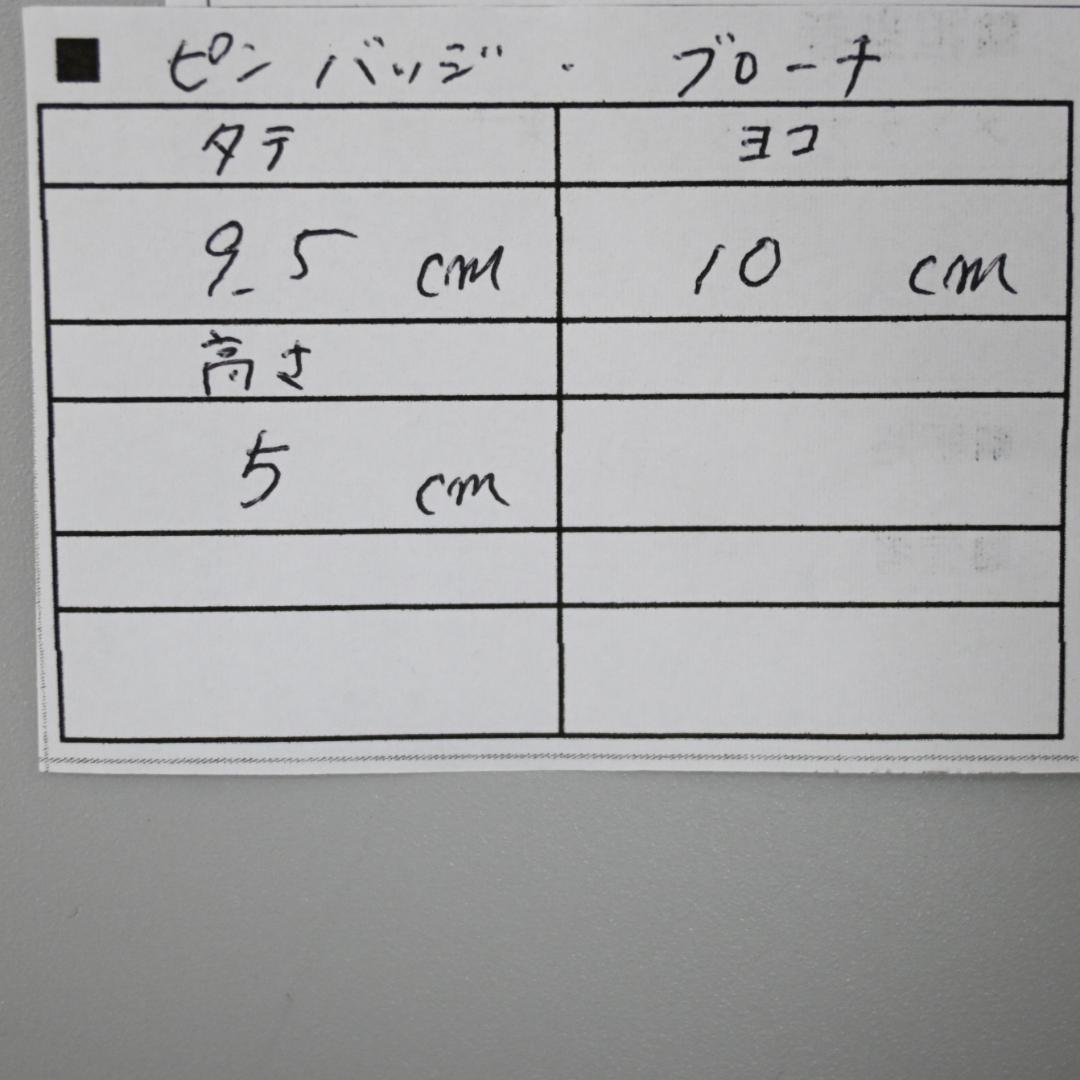 ■ ピンバッジ・ブローチ
タテ ヨコ
9.5 cm 10 cm
高さ
5 cm